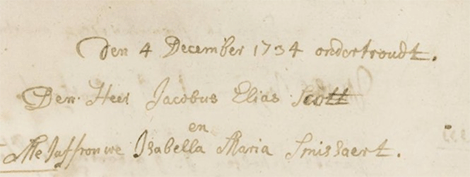 Den 4 December 1734 ondertroudt.
Den Heer Jacobus Elias Scott
en
Mejuffrouwe Isabella Maria Smissaert.